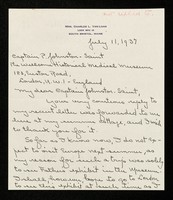 MRS. CHARLES L. POLLARD
SOUTH BRISTOL, MAINE
July 11, 1937
Captain P. Johnston-Saint
The Wellcome Historical Medical Museum
183, Euston Road,
London, N.W.1 - England
My dear Captain Johnston-Saint,
Your very courteous reply to
my recent letter was forwarded to me
here at my summer cottage, and I wish
to thank you for it.
So far as I know now, I do not ex-
pect to visit Europe next summer, as
my reason for such a trip was solely
to see
exhibit in the
I should, however, have to go to London
to see this exhibit at
time as I